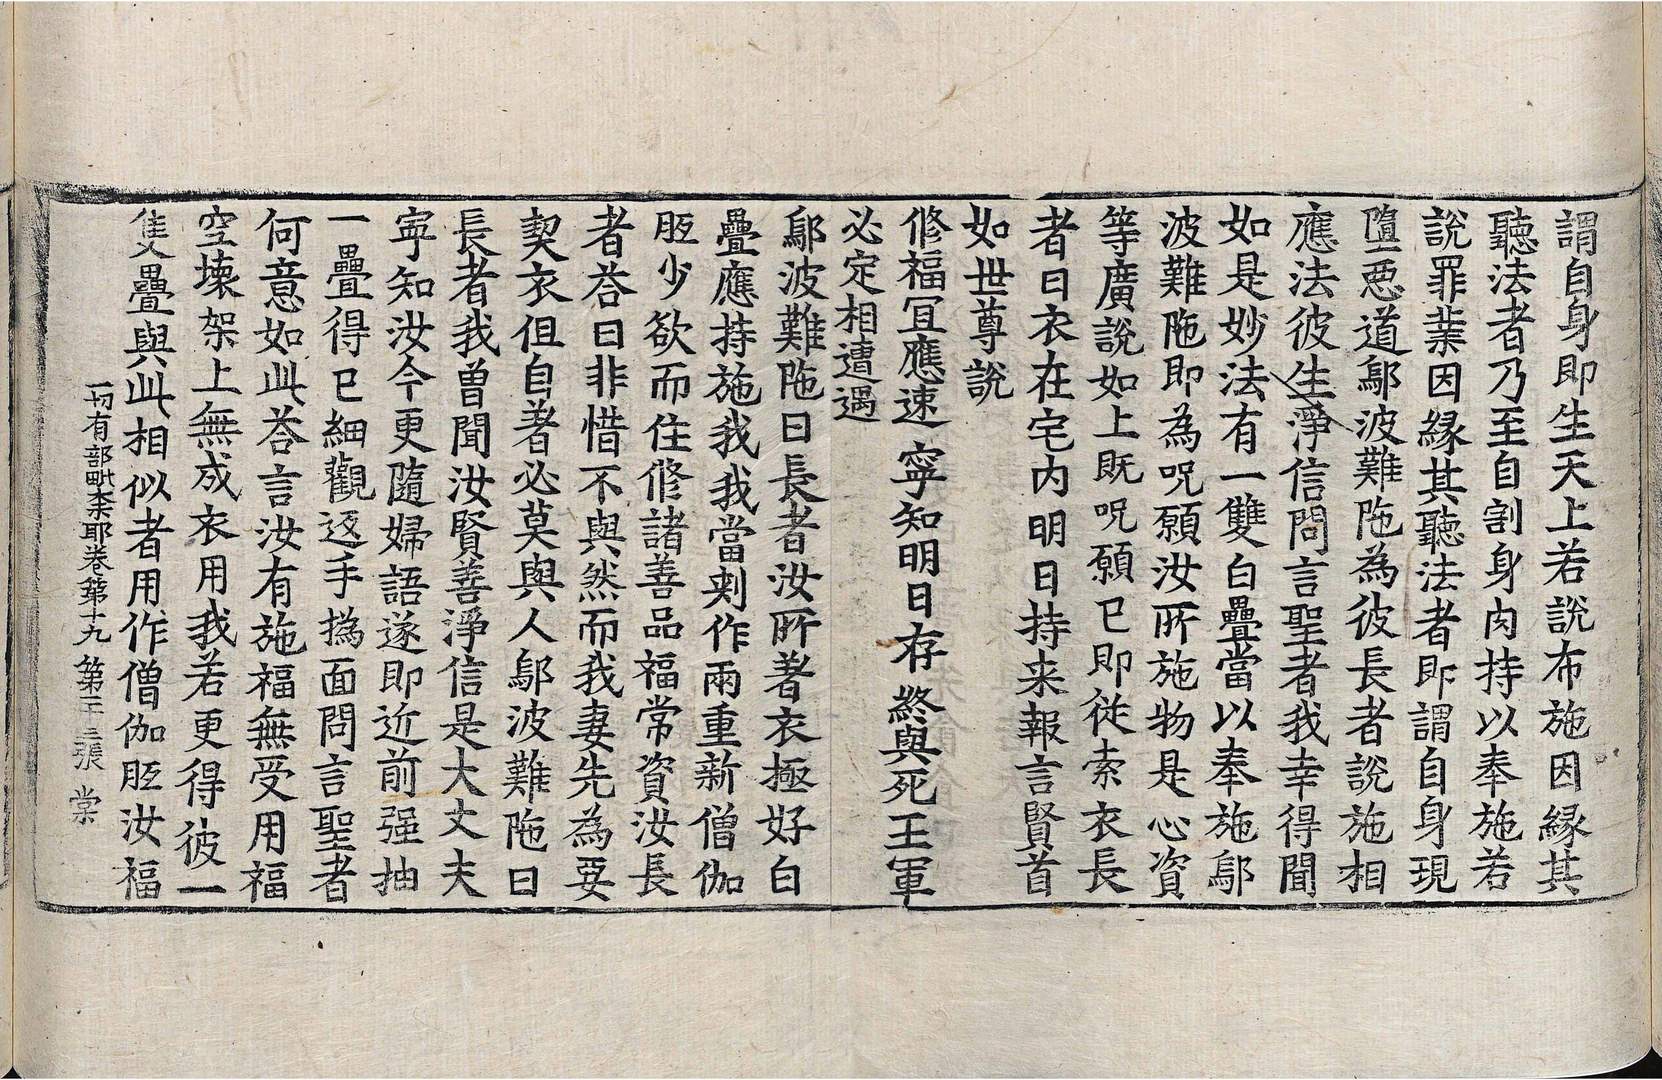 謂自身即生天上若說布施因緣其
聽法者乃至自割身肉持以奉施若
說罪業因緣其聽法者即謂自身現
墮惡道鄔波難陁為彼長者說施相
應法彼生淨信問言聖者我幸得聞
如是妙法有一雙白疊當以奉施鄔
波難陁即為呪願汝所施物是心資
等廣說如上既呪願已即從索衣長
者曰衣在宅內明日持来報言賢首
如世尊說
修福冝應速 寧知明日存 終與死王軍
必定相遭遇
鄔波難陁曰長者汝所著衣極好白
疊應持施我我當刾作兩重新僧伽
胝少欲而住修諸善品福常資汝長
者荅曰非惜不與然而我妻先為要
契衣但自著必莫與人鄔波難陁曰
長者我曾聞汝賢善淨信是大丈夫
寧知汝今更隨婦語遂即近前强抽
一疊得已細觀返手撝面問言聖者
何意如此荅言汝有施福無受用福
空壞架上無成衣用我若更得彼一
隻疊與此相似者用作僧伽胝汝福
一切有部毗柰耶卷第十九 第二十三張 棠